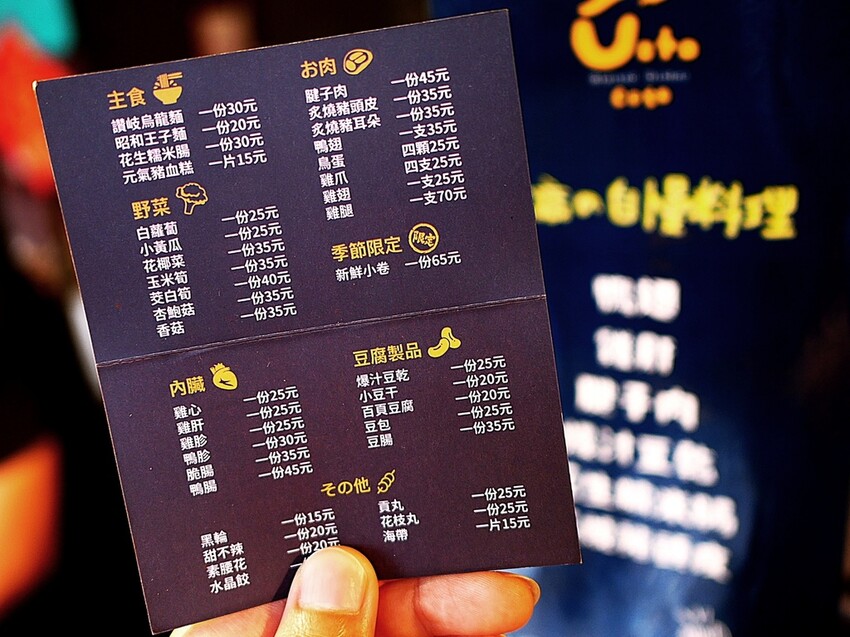 主食
讚岐烏龍麵 一份30元
昭和王子麵 一份20元
花生糯米腸 一份30元
元氣豬血糕 一片15元
お肉
腱子肉 一份45元
炙燒豬頭皮 一份35元
炙燒豬耳朵 一份35元
鴨翅 一支35元
鳥蛋 四顆25元
雞爪 四支25元
雞翅 一支25元
雞腿 一支70元
野菜
白蘿蔔 一份25元
小黃瓜 一份25元
花椰菜 一份35元
玉米筍 一份35元
茭白筍 一份40元
杏鮑菇 一份35元
香菇 一份35元
季節限定 限定
新鮮小卷 一份65元
內臟
雞心 一份25元
雞肝 一份25元
雞胗 一份25元
鴨胗 一份30元
脆腸 一份35元
鴨腸 一份45元
豆腐製品
爆汁豆乾 一份25元
小豆干 一份20元
百頁豆腐 一份20元
豆包 一份25元
豆腸 一份35元
その他
黑輪 一份15元
甜不辣 一份20元
素腰花 一份20元
水晶餃
貢丸 一份25元
花枝丸 一份25元
海帶 一片15元
の自慢料理
鴨翅
雞肝
腱子肉